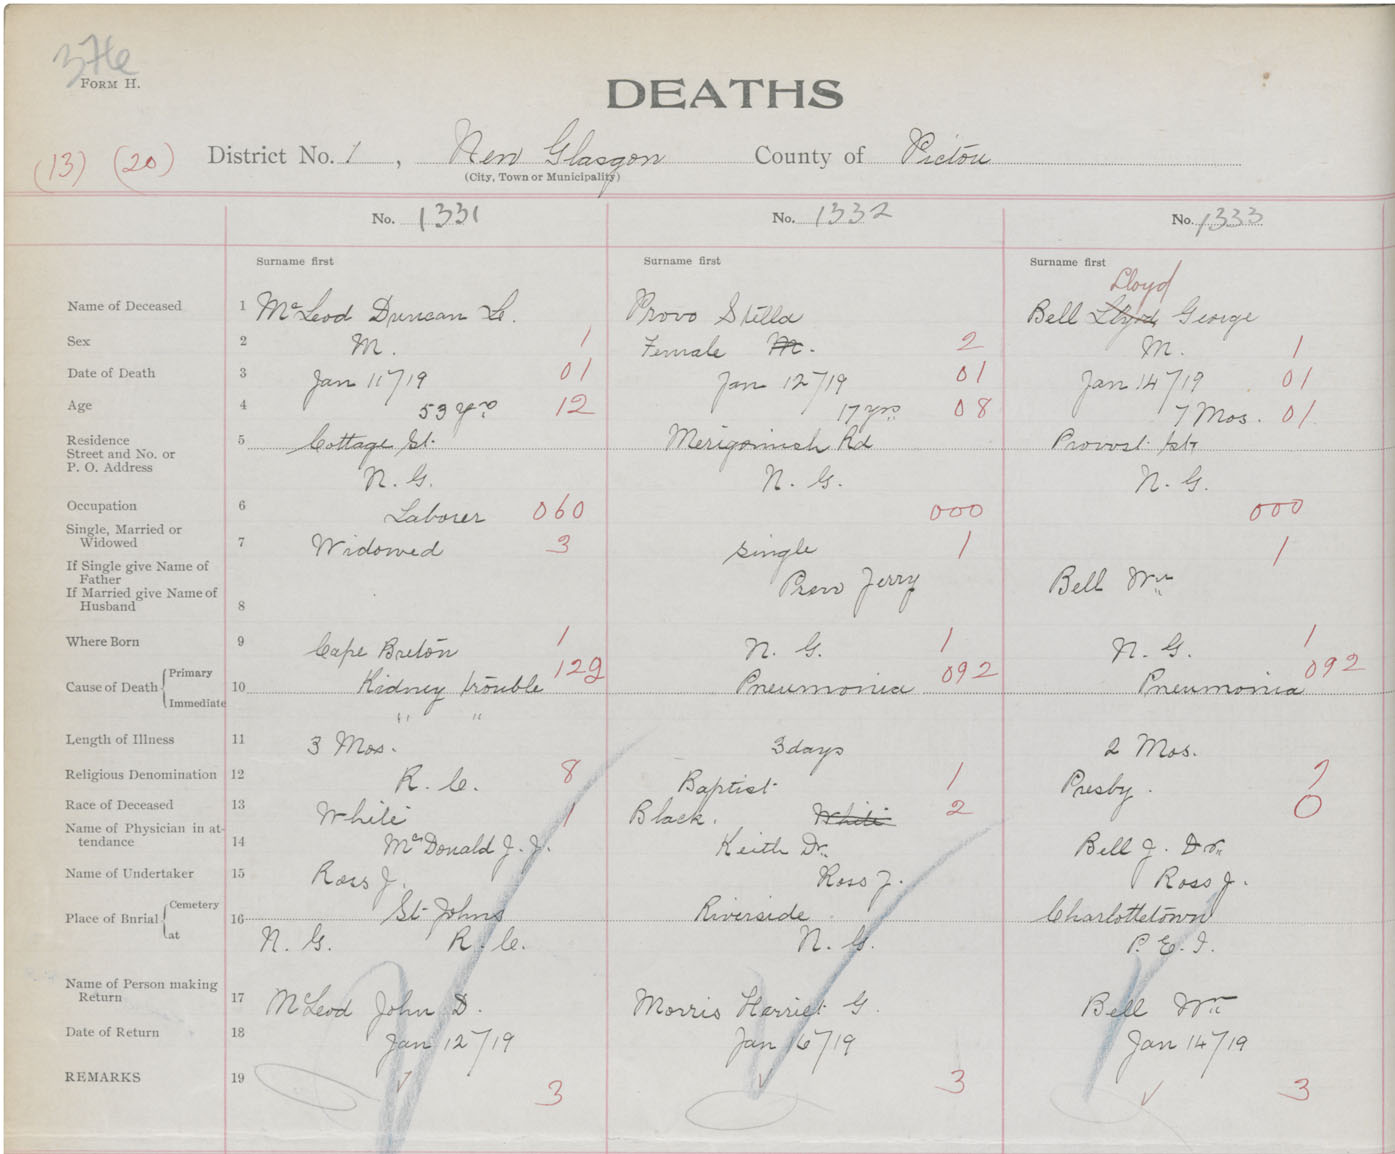 376
FORM H.
DEATHS
(13) (20) District No. 1, New Glasgow County of Pictou
(City, Town or Municipality)
No. 1331 No. 1332 No. 1333
Surname first Surname first Surname first
Lloyd
Name of Deceased 1 McLeod Duncan L. Provo Stella Bell Lloyd George
Sex 2 M. 1 Female M. 2 M. 1
Date of Death 3 Jan 11"/19 01 Jan 12"/19 01 Jan 14"/19 01
Age 4 53 yrs 12 17 yrs 08 7 Mos. 01
Residence 5 Cottage St. Merigomish Rd Provost St
Street and No. or
P. O. Address N. G. N. G. N. G.
Occupation 6 Laborer 060 000 000
Single, Married or
Widowed 7 Widowed 3 single 1 1
If Single give Name of
Father Provo Jerry Bell Wm
If Married give Name of
Husband 8
Where Born 9 Cape Breton 1 N. G. 1 N. G. 1
Cause of Death Primary 10 Kidney trouble 129 Pneumonia 092 Pneumonia 092
Immediate " "
Length of Illness 11 3 Mos. 3 days 2 Mos.
Religious Denomination 12 R. C. 8 Baptist 1 Presby. 7
Race of Deceased 13 White 1 Black. White 2 0
Name of Physician in at-
tendance 14 McDonald J. J. Keith Dr. Bell J. Dr.
Name of Undertaker 15 Ross J. Ross J. Ross J.
Place of Burial Cemetery 16 St. Johns Riverside Charlottetown
at N. G. R. C. N. G. P. E. I.
Name of Person making
Return 17 McLeod John D. Morris Harriet G. Bell Wm
Date of Return 18 Jan 12"/19 Jan 16"/19 Jan 14"/19
REMARKS 19 3 3 3